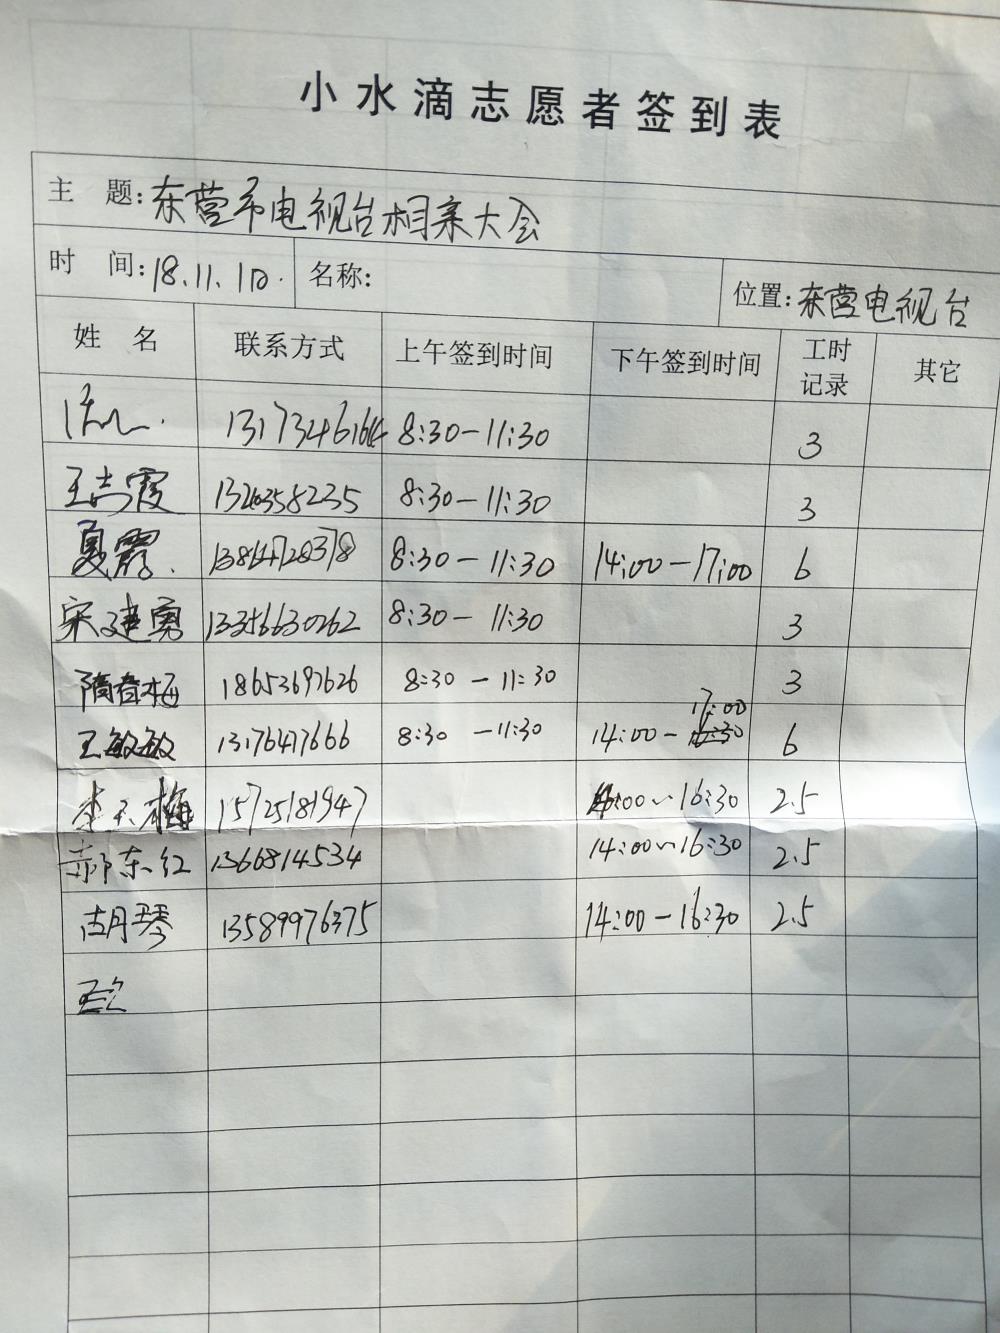 小水滴志愿者签到表
主 题: 东营市电视台相亲大会
时 间: 18.11.10. 名称: 位置: 东营电视台
姓 名 联系方式 上午签到时间 下午签到时间 工时记录 其它
8:30-11:30 3
王志霞 8:30-11:30 3
夏霞. 8:30-11:30 14:00-17:00 6
宋建勇 13356630262 8:30-11:30 3
隋春梅 18653697626 8:30-11:30 3
王敏敏 13176417666 8:30-11:30 14:00-17:00 6
李玉梅 15725181947 14:00~16:30 2.5
郝东红 1366814534 14:00~16:30 2.5
胡琴 13589976375 14:00-16:30 2.5